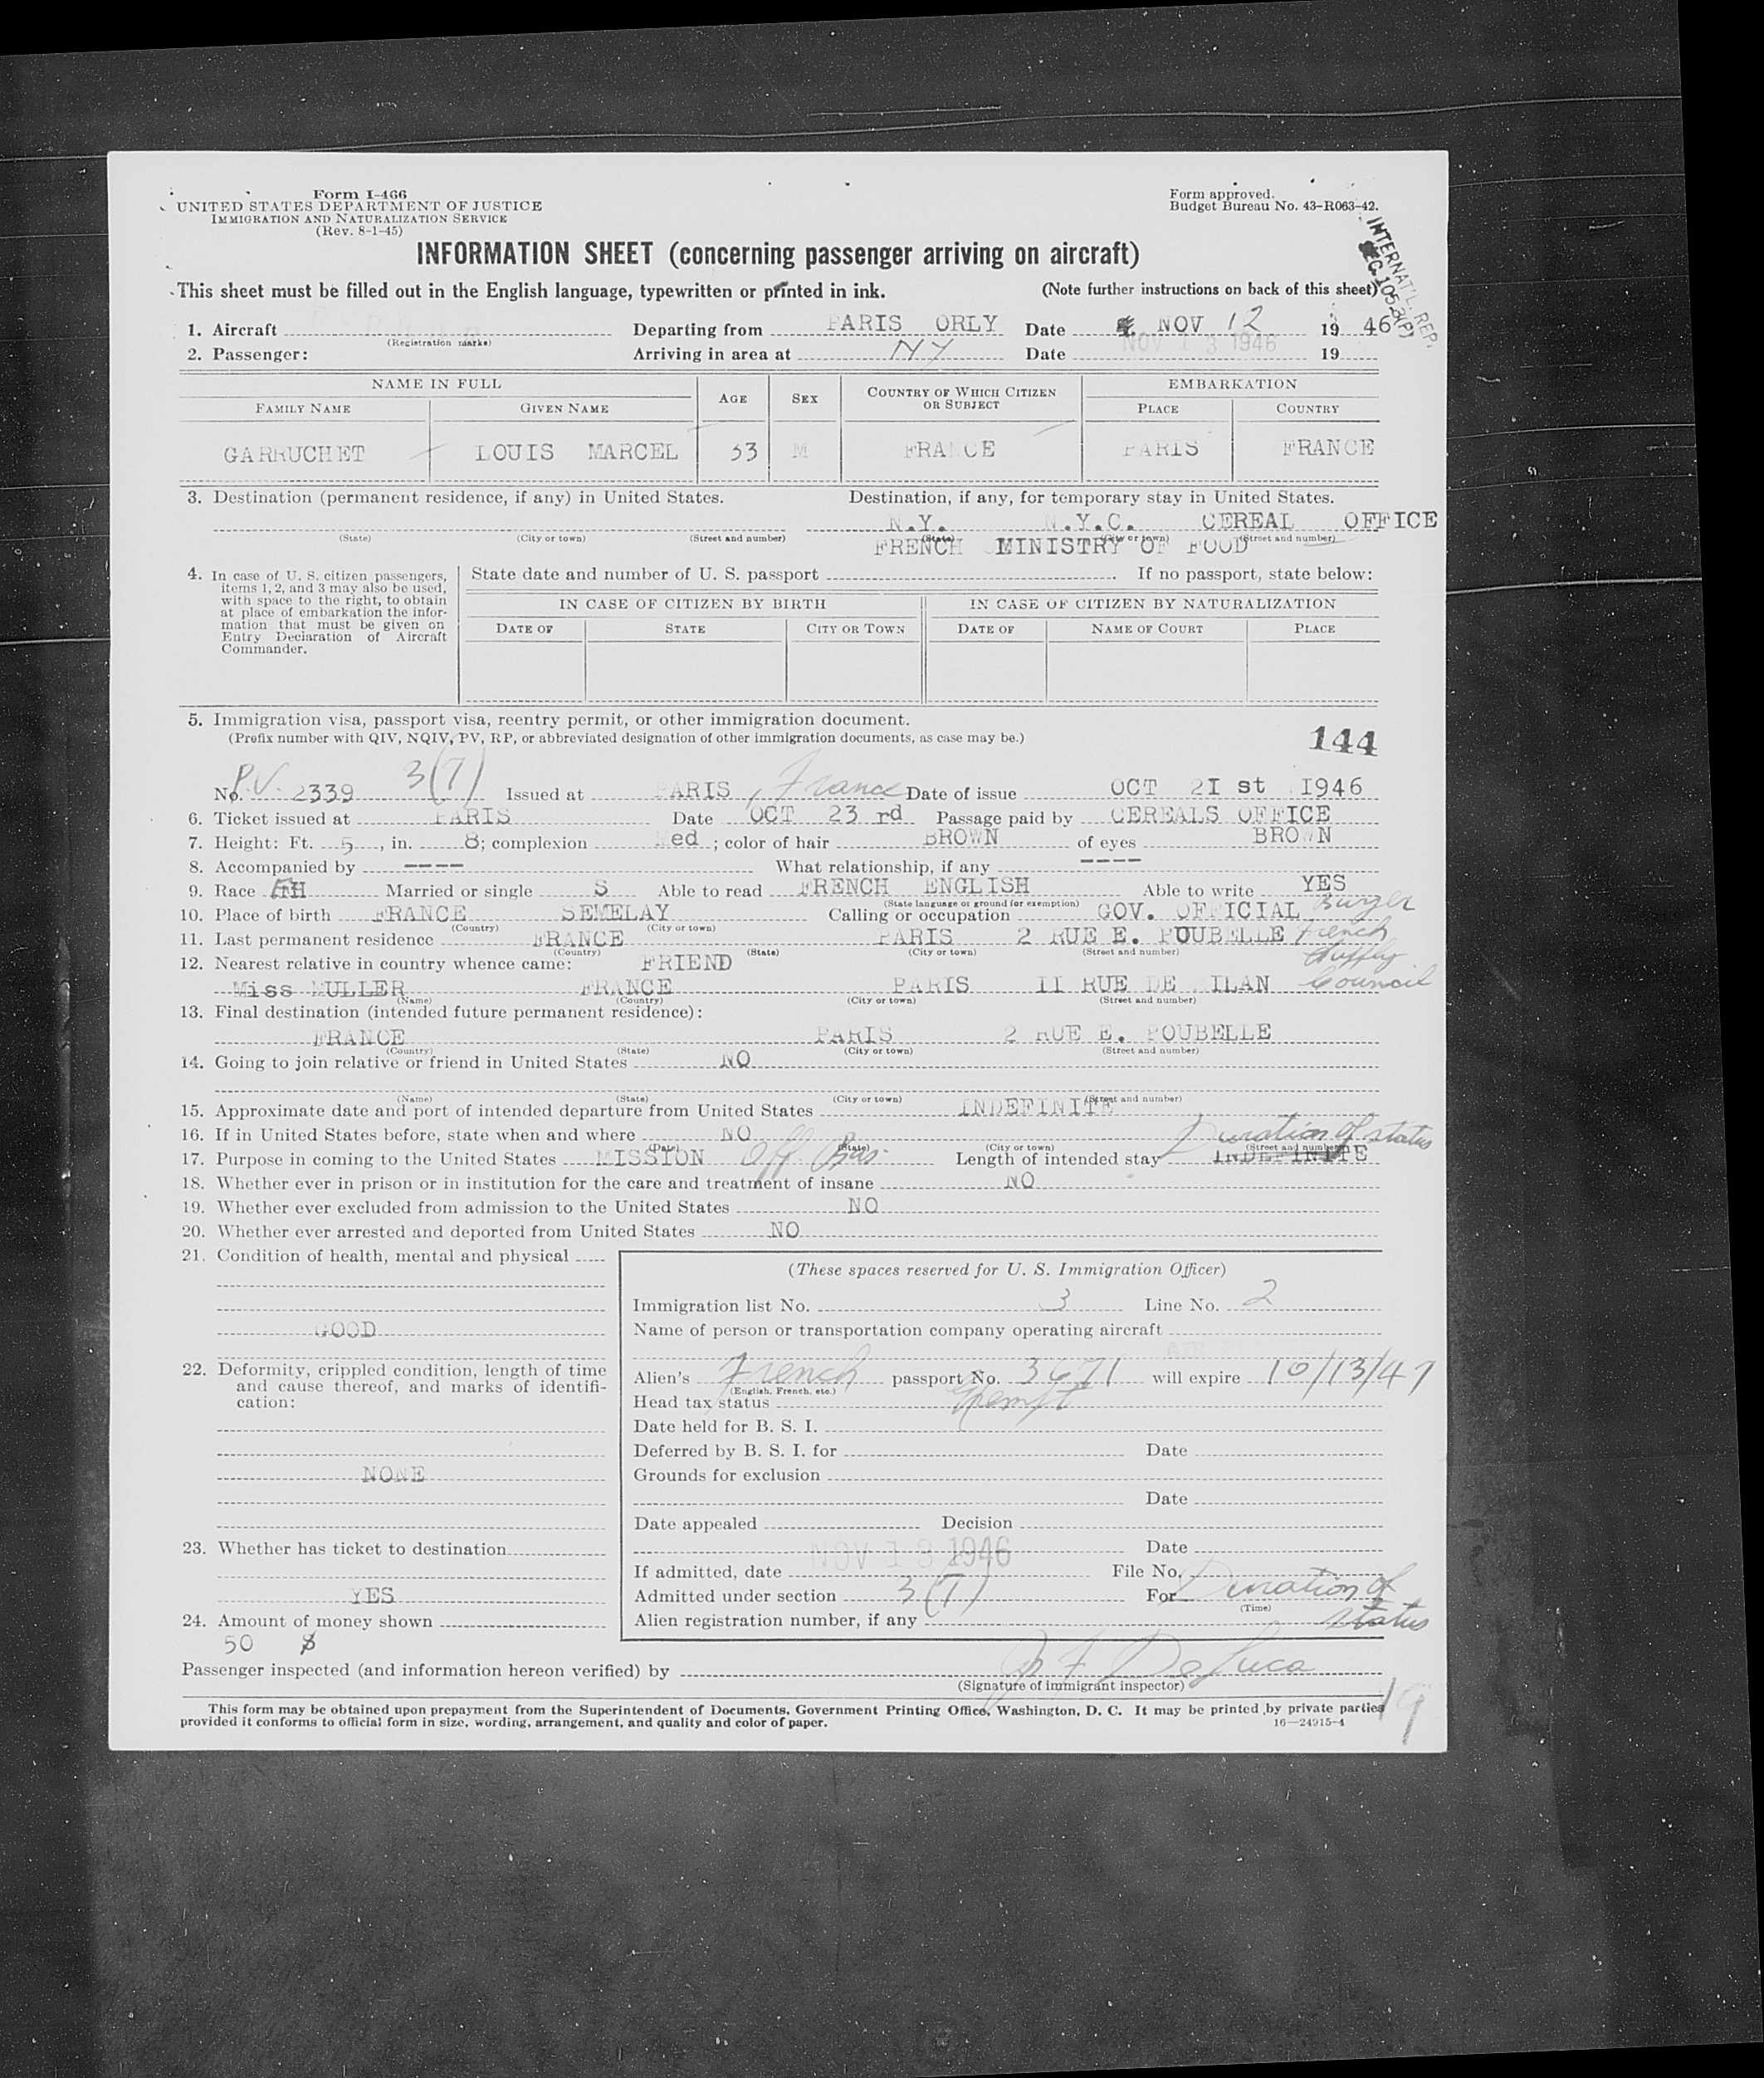 Form I-466
UNITED STATES DEPARTMENT OF JUSTICE
IMMIGRATION AND NATURALIZATION SERVICE
(Rev. 8-1-45)
Form approved.
Budget Bureau No. 43-R063-42.
INTERNAT'L REP.
INFORMATION SHEET (concerning passenger arriving on aircraft)
This sheet must be filled out in the English language, typewritten or printed in ink. (Note further instructions on back of this sheet)
1. Aircraft Departing from PARIS ORLY Date NOV 12 19 46
(Registration marks)
2. Passenger: Arriving in area at NY Date NOV 13 1946 19
NAME IN FULL AGE SEX COUNTRY OF WHICH CITIZEN OR SUBJECT EMBARKATION
FAMILY NAME GIVEN NAME PLACE COUNTRY
GARRUCHET LOUIS MARCEL 53 M FRANCE PARIS FRANCE
3. Destination (permanent residence, if any) in United States. Destination, if any, for temporary stay in United States.
N.Y. N.Y.C. CEREAL OFFICE
(State) (City or town) (Street and number) (State) (City or town) (Street and number)
FRENCH MINISTRY OF FOOD
4. In case of U. S. citizen passengers, items 1, 2, and 3 may also be used, with space to the right, to obtain at place of embarkation the information that must be given on Entry Declaration of Aircraft Commander.
State date and number of U. S. passport If no passport, state below:
IN CASE OF CITIZEN BY BIRTH IN CASE OF CITIZEN BY NATURALIZATION
DATE OF STATE CITY OR TOWN DATE OF NAME OF COURT PLACE
5. Immigration visa, passport visa, reentry permit, or other immigration document.
(Prefix number with QIV, NQIV, PV, RP, or abbreviated designation of other immigration documents, as case may be.)
144
No. P.V. 2339 3(7) Issued at PARIS, France Date of issue OCT 2I st I946
6. Ticket issued at PARIS Date OCT 23 rd Passage paid by CEREALS OFFICE
7. Height: Ft. 5, in. 8; complexion Med; color of hair BROWN of eyes BROWN
8. Accompanied by ---- What relationship, if any ----
9. Race FH Married or single S Able to read FRENCH ENGLISH Able to write YES
(State language or ground for exemption)
10. Place of birth FRANCE SEMELAY Calling or occupation GOV. OFFICIAL
(Country) (City or town)
11. Last permanent residence FRANCE PARIS 2 RUE E. POUBELLE French
(Country) (State) (City or town) (Street and number)
12. Nearest relative in country whence came: FRIEND
Miss MULLER FRANCE PARIS II RUE DE MILAN Council
(Name) (Country) (City or town) (Street and number)
13. Final destination (intended future permanent residence):
FRANCE PARIS 2 RUE E. POUBELLE
(Country) (State) (City or town) (Street and number)
14. Going to join relative or friend in United States NO
(Name) (State) (City or town) (Street and number)
15. Approximate date and port of intended departure from United States INDEFINITE
16. If in United States before, state when and where NO Duration of status
(Date) (State) (City or town) (Street and number)
17. Purpose in coming to the United States MISSION Off Bus Length of intended stay INDEFINITE
18. Whether ever in prison or in institution for the care and treatment of insane NO
19. Whether ever excluded from admission to the United States NO
20. Whether ever arrested and deported from United States NO
21. Condition of health, mental and physical
GOOD
22. Deformity, crippled condition, length of time and cause thereof, and marks of identification:
NONE
23. Whether has ticket to destination
YES
24. Amount of money shown
50 $
(These spaces reserved for U. S. Immigration Officer)
Immigration list No. 3 Line No. 2
Name of person or transportation company operating aircraft
Alien's French passport No. 3671 will expire 10/13/47
(English, French, etc.)
Head tax status Exempt
Date held for B. S. I.
Deferred by B. S. I. for Date
Grounds for exclusion
Date
Date appealed Decision
Date
If admitted, date NOV 13 1946 File No.
Admitted under section 3(7) For Duration of status
(Time)
Alien registration number, if any
Passenger inspected (and information hereon verified) by DeLuca
(Signature of immigrant inspector)
This form may be obtained upon prepayment from the Superintendent of Documents, Government Printing Office, Washington, D. C. It may be printed by private parties
provided it conforms to official form in size, wording, arrangement, and quality and color of paper. 16—24915-4
19